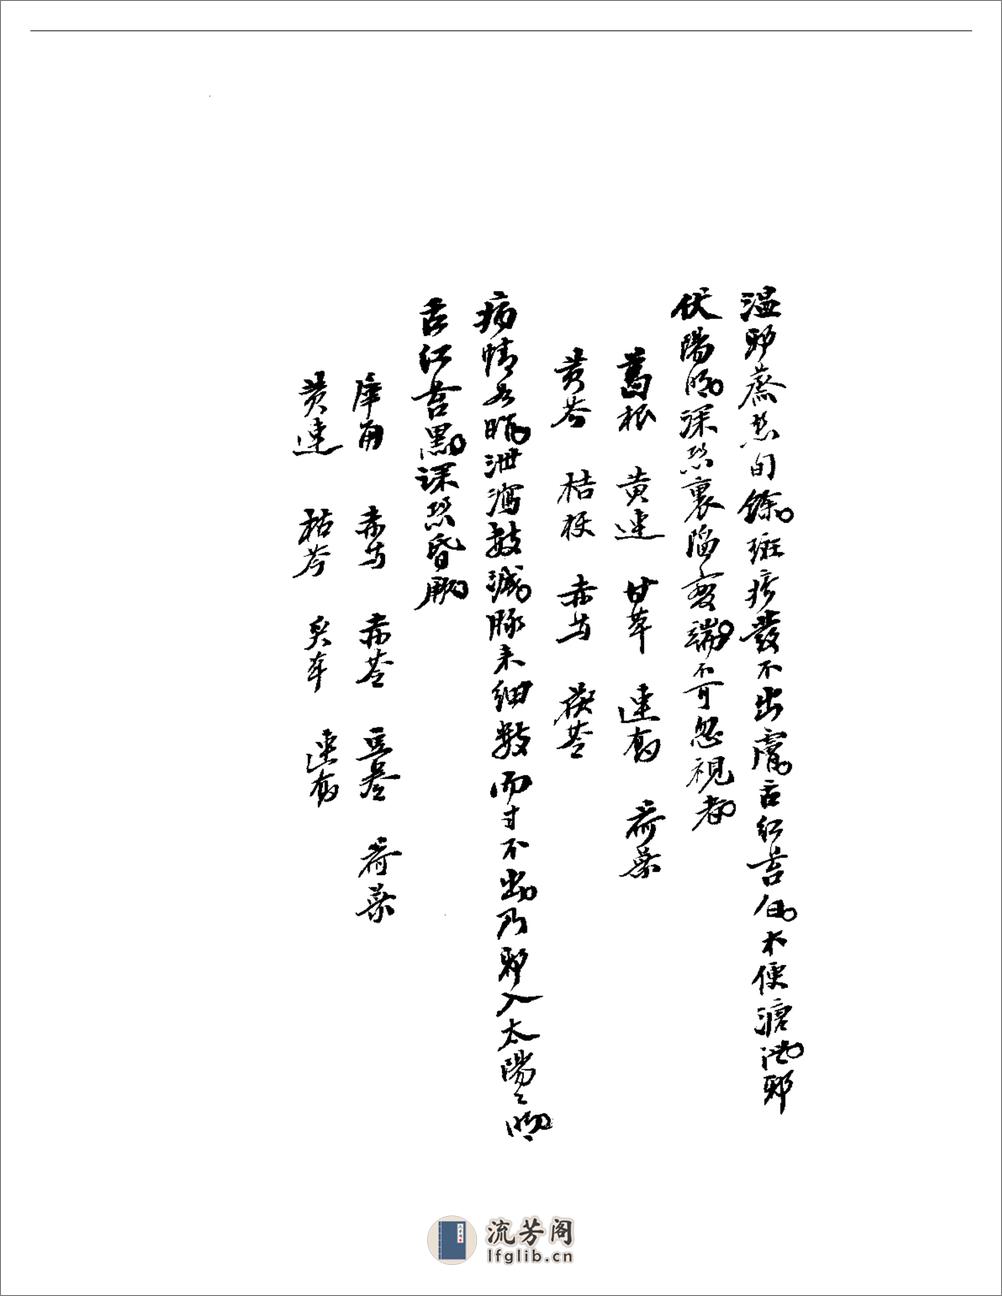 溫邪蒸熱旬餘。斑疹發不出膚。舌紅苔白。大便溏泄。邪
伏陽明。深恐裏陷變端。不可忽視者。
葛根 黃連 甘草 連翹 荷葉
黃芩 桔梗 赤芍 茯苓
病情如昨。泄瀉較減。脉来細數而寸不出。乃邪入太陽之明
舌紅苔黑。深恐昏厥。
犀角 赤芍 赤苓 豆卷 荷葉
黃連 枯芩 炙草 連翹
流芳阁
lfglib.cn